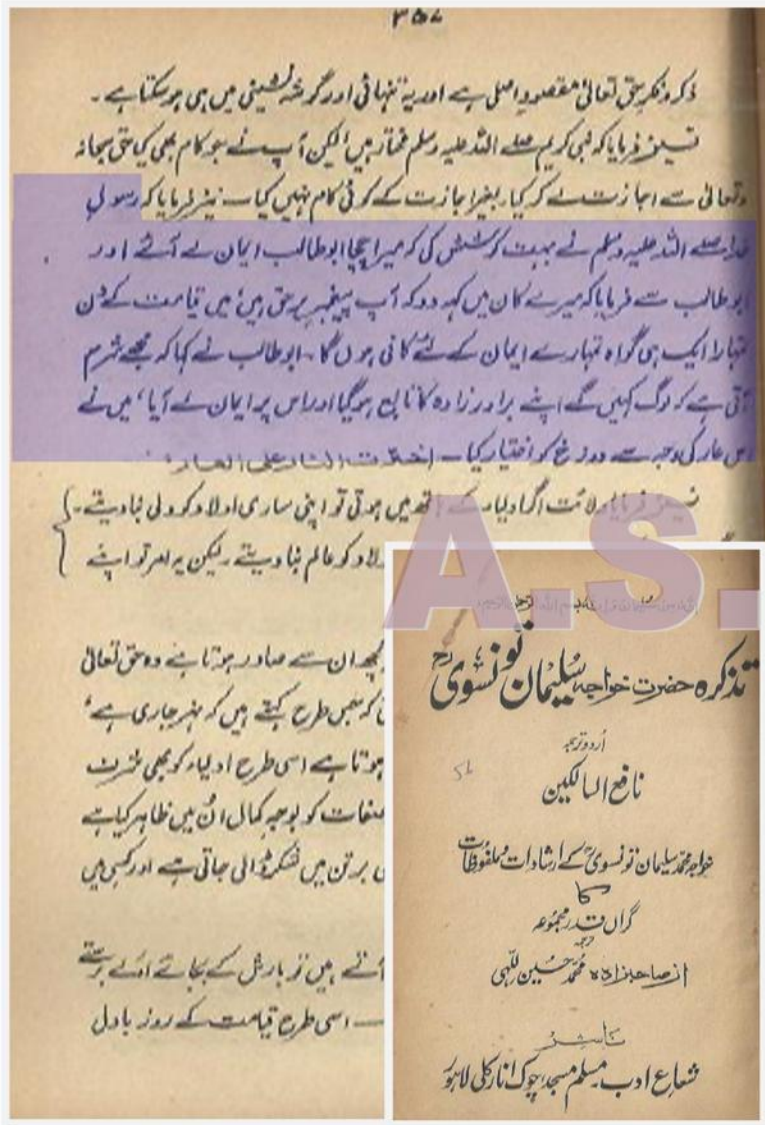 ۳۵۷
ذکر و فکر حق تعالیٰ مقصودِ اصلی ہے اور یہ تنہائی اور گوشہ نشینی میں ہی ہو سکتا ہے۔
نیز فرمایا کہ نبی کریم صلے اللہ علیہ وسلم مختار ہیں لیکن آپ نے جو کام بھی کیا حق سبحانہ
وتعالیٰ سے اجازت لے کر کیا، بغیر اجازت کے کوئی کام نہیں کیا۔ نیز فرمایا کہ رسولِ
خدا صلے اللہ علیہ وسلم نے بہت کوشش کی کہ میرا چچا ابوطالب ایمان لے آئے اور
ابوطالب سے فرمایا کہ میرے کان میں کہہ دو کہ آپ پیغمبر برحق ہیں، میں قیامت کے دن
تمہارا ایک ہی گواہ تمہارے ایمان کے لئے کافی ہوں گا۔ ابوطالب نے کہا کہ مجھے شرم
آتی ہے کہ لوگ کہیں گے اپنے برادر زادہ کا تابع ہو گیا اور اس پر ایمان لے آیا، میں نے
اس عار کی وجہ سے دوزخ کو اختیار کیا۔ اخترت النار علی العار
نیز فرمایا ولائت اگر اولیاء کے ہاتھ میں ہوتی تو اپنی ساری اولاد کو ولی بنا دیتے۔
لاد کو عالم بنا دیتے لیکن یہ امر تو اپنے
کچھ ان سے صادر ہوتا ہے وہ حق تعالیٰ
کہ جس طرح کہتے ہیں کہ نہر جاری ہے،
ہوتا ہے اسی طرح اولیاء کو بھی شرف
صفات کو بوجہ کمال اُن میں ظاہر کیا ہے
برتن میں شکر ڈالی جاتی ہے اور کسی میں
آتے ہیں تو بارش کے بجائے اولے برستے
— اسی طرح قیامت کے روز بادل
A.S.
تذکرہ حضرت خواجہ سلیمان تونسوی رح
اُردو ترجمہ
نافع السالکین
خواجہ محمد سلیمان تونسوی کے ارشادات و ملفوظات
کا
گراں قدر مجموعہ
ترجمہ
از صاحبزادہ محمد حسین للّٰہی
ناشر
شعاعِ ادب۔ مسلم مسجد، چوک انارکلی لاہور